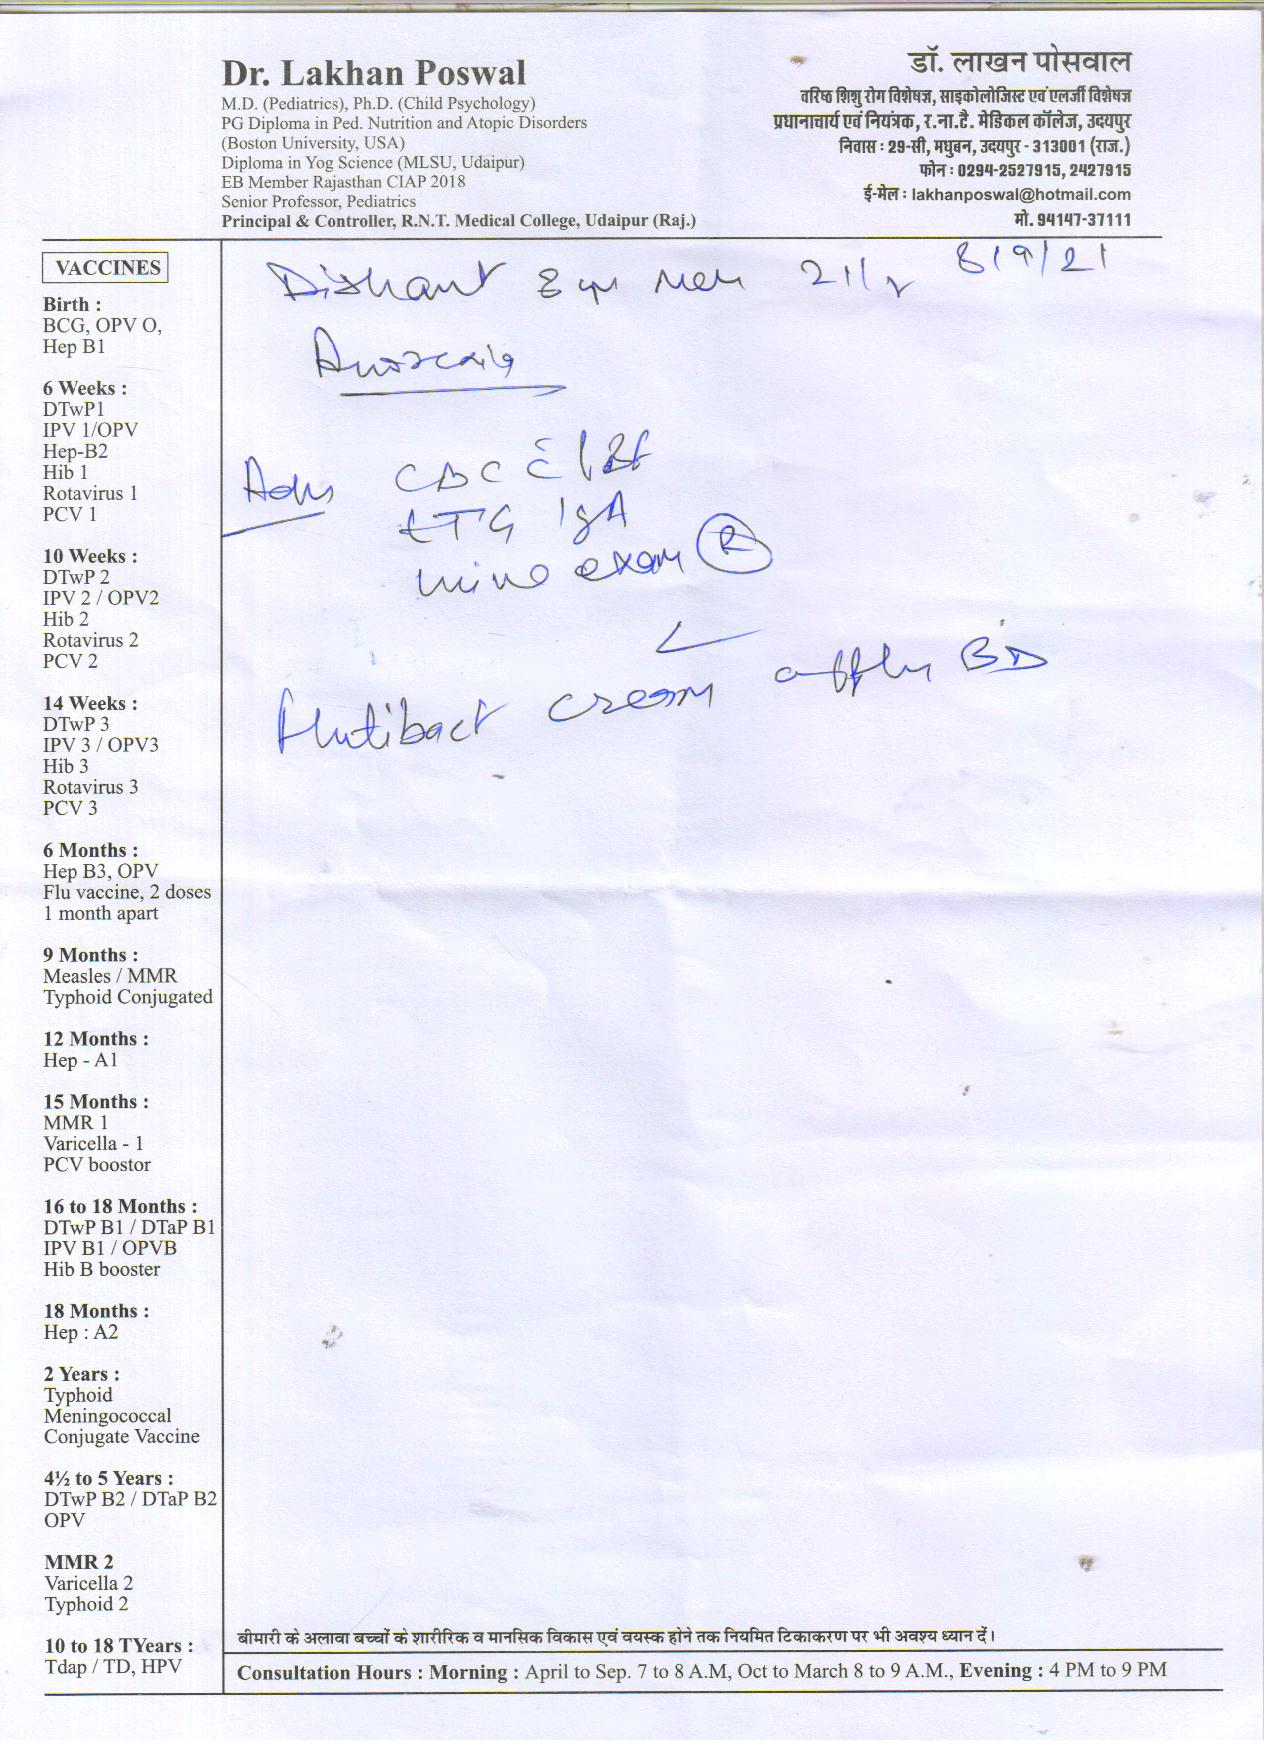 Dr. Lakhan Poswal
M.D. (Pediatrics), Ph.D. (Child Psychology)
PG Diploma in Ped. Nutrition and Atopic Disorders
(Boston University, USA)
Diploma in Yog Science (MLSU, Udaipur)
EB Member Rajasthan CIAP 2018
Senior Professor, Pediatrics
Principal & Controller, R.N.T. Medical College, Udaipur (Raj.)
डॉ. लाखन पोसवाल
वरिष्ठ शिशु रोग विशेषज्ञ, साइकोलोजिस्ट एवं एलर्जी विशेषज्ञ
प्रधानाचार्य एवं नियंत्रक, र.ना.टै. मेडिकल कॉलेज, उदयपुर
निवास : 29-सी, मधुबन, उदयपुर - 313001 (राज.)
फोन : 0294-2527915, 2427915
ई-मेल : lakhanposwal@hotmail.com
मो. 94147-37111
VACCINES
Birth :
BCG, OPV O,
Hep B1
6 Weeks :
DTwP1
IPV 1/OPV
Hep-B2
Hib 1
Rotavirus 1
PCV 1
10 Weeks :
DTwP 2
IPV 2 / OPV2
Hib 2
Rotavirus 2
PCV 2
14 Weeks :
DTwP 3
IPV 3 / OPV3
Hib 3
Rotavirus 3
PCV 3
6 Months :
Hep B3, OPV
Flu vaccine, 2 doses
1 month apart
9 Months :
Measles / MMR
Typhoid Conjugated
12 Months :
Hep - A1
15 Months :
MMR 1
Varicella - 1
PCV boostor
16 to 18 Months :
DTwP B1 / DTaP B1
IPV B1 / OPVB
Hib B booster
18 Months :
Hep : A2
2 Years :
Typhoid
Meningococcal
Conjugate Vaccine
4½ to 5 Years :
DTwP B2 / DTaP B2
OPV
MMR 2
Varicella 2
Typhoid 2
10 to 18 TYears :
Tdap / TD, HPV
Dishant 8 yr 8/9/21
Adv CBC
tTG IgA
urine exam R
Flutibact cream apply BD
बीमारी के अलावा बच्चों के शारीरिक व मानसिक विकास एवं वयस्क होने तक नियमित टिकाकरण पर भी अवश्य ध्यान दें।
Consultation Hours : Morning : April to Sep. 7 to 8 A.M, Oct to March 8 to 9 A.M., Evening : 4 PM to 9 PM